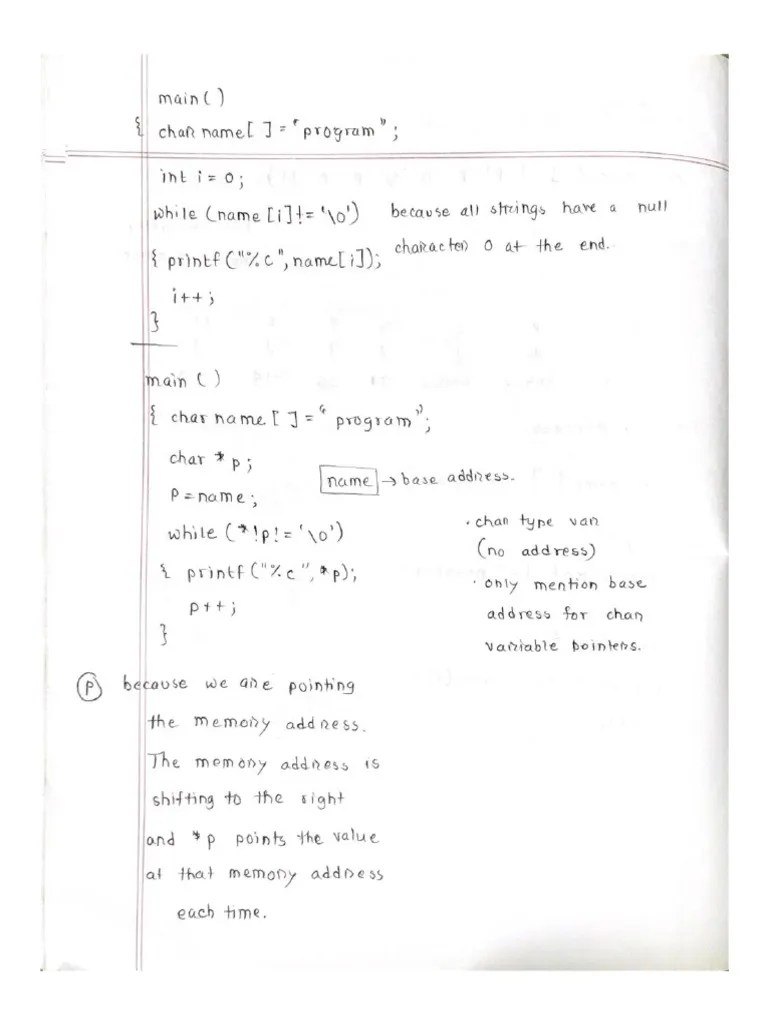 main( )
{ char name[ ] = "program";
int i = 0;
while (name [i] != '\0') because all strings have a null
character 0 at the end.
{ printf ("%c", name[i]);
i++;
}
main ( )
{ char name [ ] = "program";
char * p;
name → base address.
P = name;
while (*!p != '\0')
{ printf ("%c", *p);
p++;
}
· char type var
(no address)
· only mention base
address for char
variable pointers.
P because we are pointing
the memory address.
The memory address is
shifting to the right
and *p points the value
at that memory address
each time.